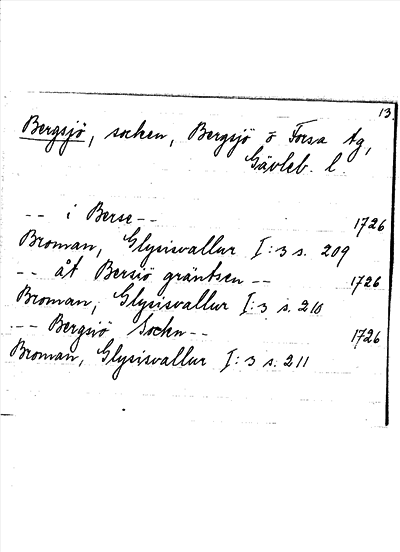 13.
Bergsjö, socken, Bergsjö o Forsa tg,
Gävleb. l.
-- i Berse -- 1726
Broman, Glysisvallur I:3 s. 209
-- åt Bersiö gräntsen -- 1726
Broman, Glysisvallur I:3 s. 210
-- Bergsiö Sockn -- 1726
Broman, Glysisvallur I:3 s. 211